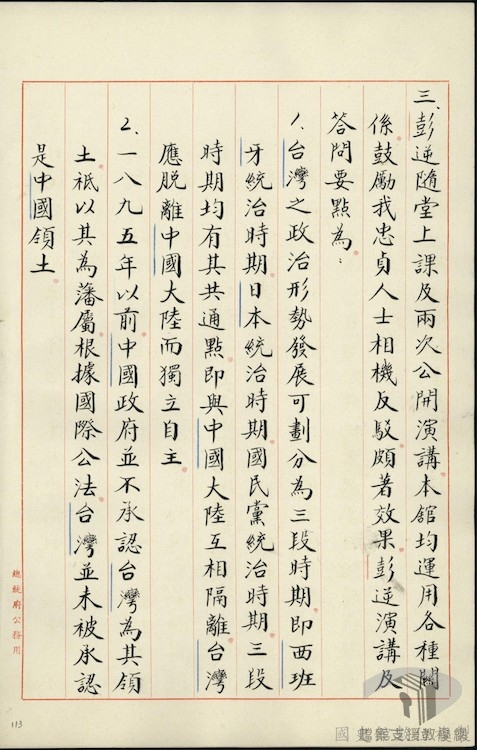 三、彭逆隨堂上課及兩次公開演講本館均運用各種關
係鼓勵我忠貞人士相機反駁頗著效果彭逆演講及
答問要點為：
1.台灣之政治形勢發展可劃分為三段時期即西班
牙統治時期日本統治時期國民黨統治時期三段
時期均有其共通點即與中國大陸互相隔離台灣
應脫離中國大陸而獨立自主
2.一八九五年以前中國政府並不承認台灣為其領
土祇以其為藩屬根據國際公法台灣並未被承認
是中國領土
總統府公務用
113